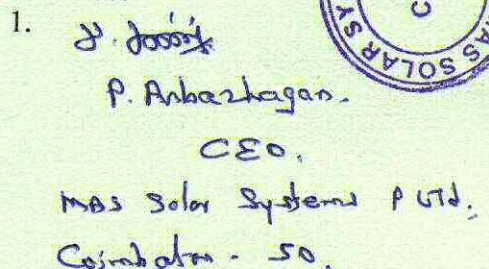 1.
P. Anbazhagan.
CEO.
MAS Solar Systems P LTd.
Coimbatore - 50.
MAS SOLAR SY
C